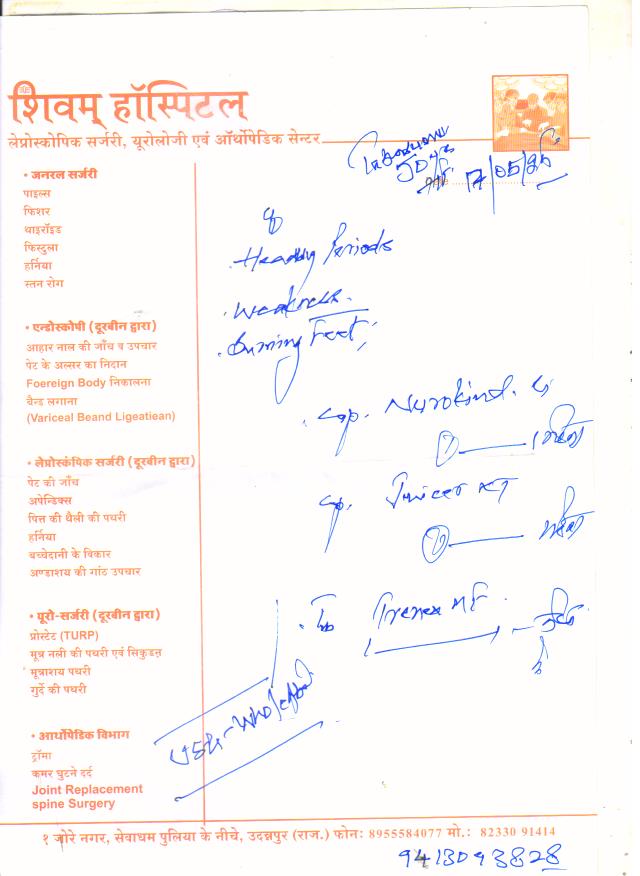 शिवम् हॉस्पिटल
लेप्रोस्कोपिक सर्जरी, यूरोलोजी एवं ऑर्थोपेडिक सेन्टर
30 yr
17/05/25
• जनरल सर्जरी
पाइल्स
फिशर
थाइरॉइड
फिस्टुला
हर्निया
स्तन रोग
• एन्डोस्कोपी (दूरबीन द्वारा)
आहार नाल की जाँच व उपचार
पेट के अल्सर का निदान
Foereign Body निकालना
बैन्ड लगाना
(Variceal Beand Ligeatiean)
• लेप्रोस्कंपिक सर्जरी (दूरबीन द्वारा)
पेट की जाँच
अपेन्डिक्स
पित्त की थैली की पथरी
हर्निया
बच्चेदानी के विकार
अण्डाशय की गांठ उपचार
• यूरो-सर्जरी (दूरबीन द्वारा)
प्रोस्टेट (TURP)
मूत्र नली की पथरी एवं सिकुडन
मूत्राशय पथरी
गुर्दे की पथरी
• आर्थोपेडिक विभाग
ट्रॉमा
कमर घुटने दर्द
Joint Replacement
spine Surgery
Periods
. Weakness.
. Burning Feet
. Cap. Nurokind.
①
Cap.
①
Trenex MF.
१ जोरे नगर, सेवाधम पुलिया के नीचे, उदन्नपुर (राज.) फोनः 8955584077 मो.: 82330 91414
9413093828